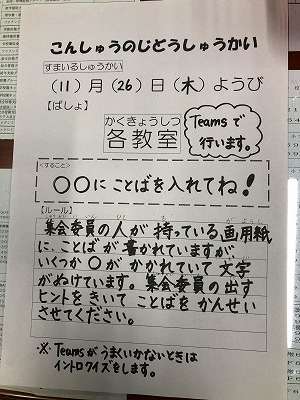 こんしゅうのじどうしゅうかい
すまいるしゅうかい
(11)月(26)日(木)ようび
【ばしょ】
かくきょうしつ
各教室
Teamsで
行います。
<すること>
○○にことばを入れてね!
【ルール】
集会委員の人が持っている画用紙
に、ことばが書かれていますが、
いくつか○がかかれていて文字
がぬけています。集会委員の出す
ヒントをきいてことばをかんせい
させてください。
※Teamsがうまくいかないときは
イントロクイズをします。